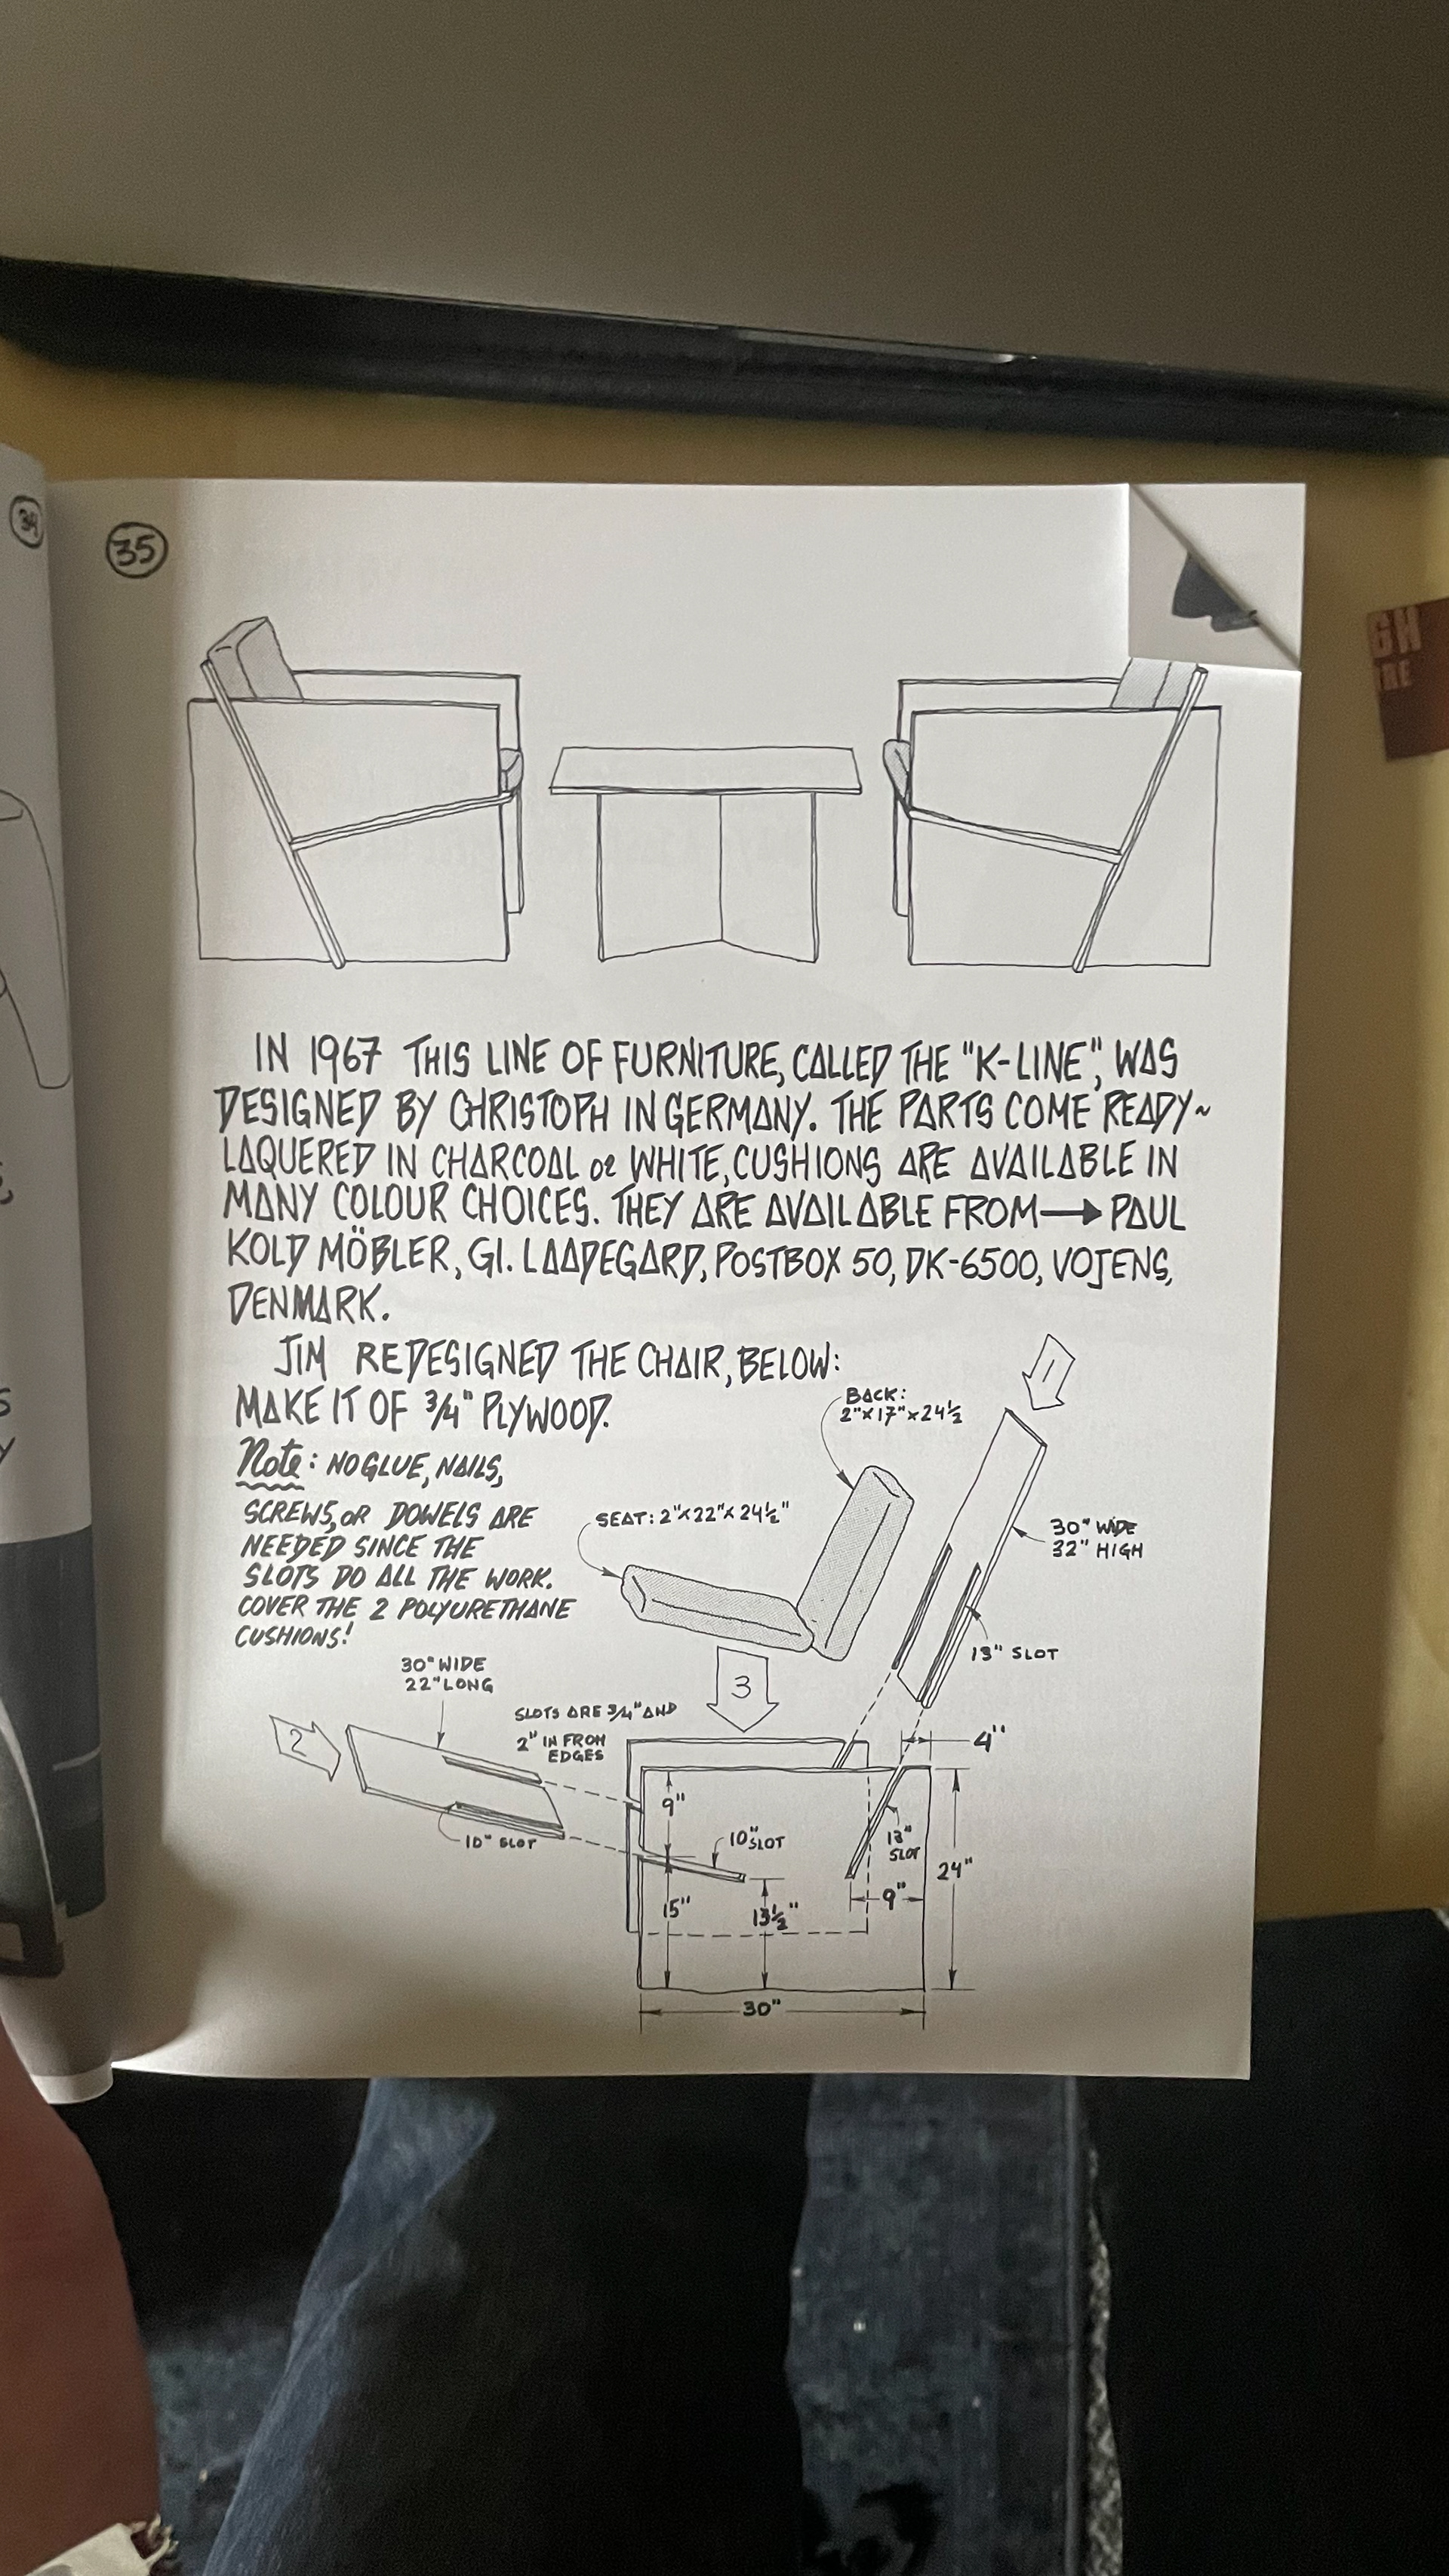 34
35
GH
RE
IN 1967 THIS LINE OF FURNITURE, CALLED THE "K-LINE", WAS
DESIGNED BY CHRISTOPH IN GERMANY. THE PARTS COME READY~
LAQUERED IN CHARCOAL or WHITE, CUSHIONS ARE AVAILABLE IN
MANY COLOUR CHOICES. THEY ARE AVAILABLE FROM → PAUL
KOLD MÖBLER, Gl. LAADEGARD, POSTBOX 50, DK-6500, VOJENS,
DENMARK.
JIM REDESIGNED THE CHAIR, BELOW:
MAKE IT OF 3/4" PLYWOOD.
Note: NO GLUE, NAILS,
SCREWS, OR DOWELS ARE
NEEDED SINCE THE
SLOTS DO ALL THE WORK.
COVER THE 2 POLYURETHANE
CUSHIONS!
1
BACK:
2"x17"x24½
SEAT: 2"x22"x24½"
30" WIDE
32" HIGH
13" SLOT
30" WIDE
22" LONG
3
SLOTS ARE 3/4" AND
2" IN FROM
EDGES
2
4"
10" SLOT
9"
10" SLOT
13" SLOT
24"
15"
13½"
9"
30"